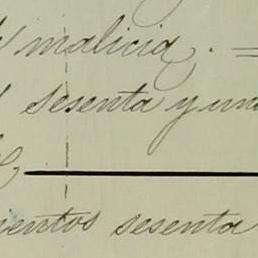 malicia. =
sesenta y un
ientos sesenta